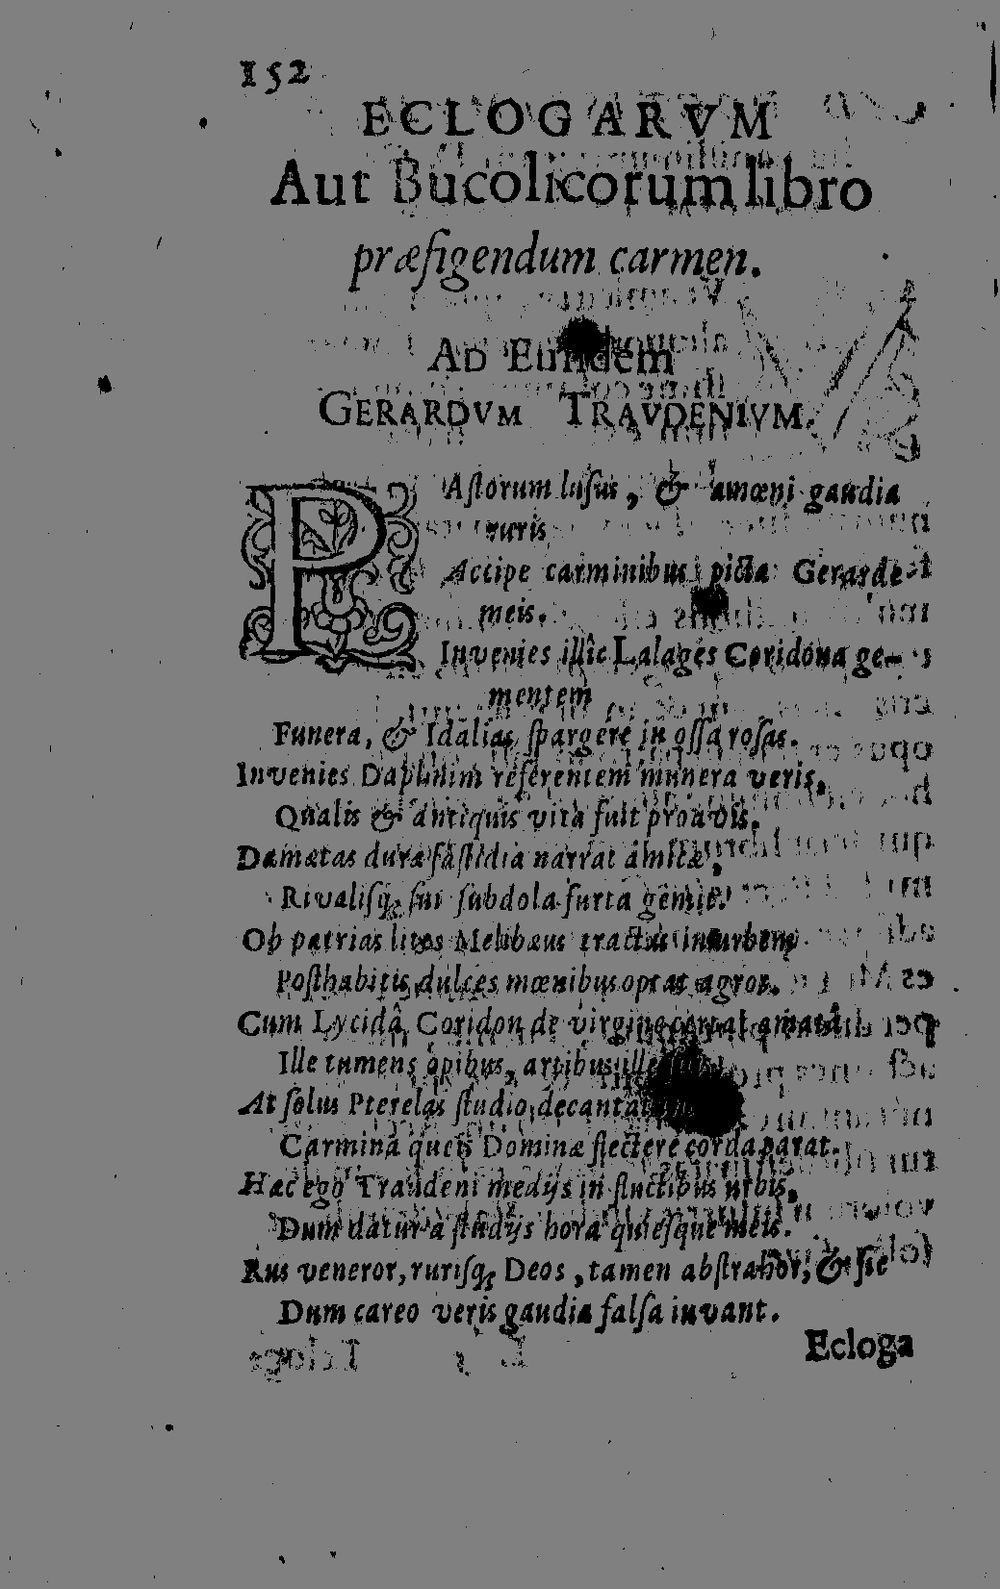 152
ECLOGARVM
Aut Bucolicorum libro
præfigendum carmen.
AD Eundem
GERARDVM TRAVDENIVM.
PAstorum lusus, & amœni gaudia
ruris
Accipe carminibus picta Gerarde
meis.
Invenies illîc Lalages Coridona ge-
mentem
Funera, & Idalias spargere in ossa rosas.
Invenies Daphnim referentem munera veris,
Qualis & antiquis vita fuit proavis.
Damætas duræ fastidia narrat amicæ,
Rivalisq; sui subdola furta gemit.
Ob patrias lites Melibæus tractus in urbem
Posthabitis dulces mœnibus optat agros.
Cum Lycidâ Coridon de virgine certat amatâ
Ille tumens opibus, artibus ille
At solus Pterelas studio decantat
Carmina queis Dominæ flectere corda parat.
Hæc ego Traudeni medijs in fluctibus urbis,
Dum datur à studijs hora quiesque meis.
Rus veneror, rurisq; Deos, tamen abstrahor, & sic
Dum careo veris gaudia falsa iuvant.
Ecloga